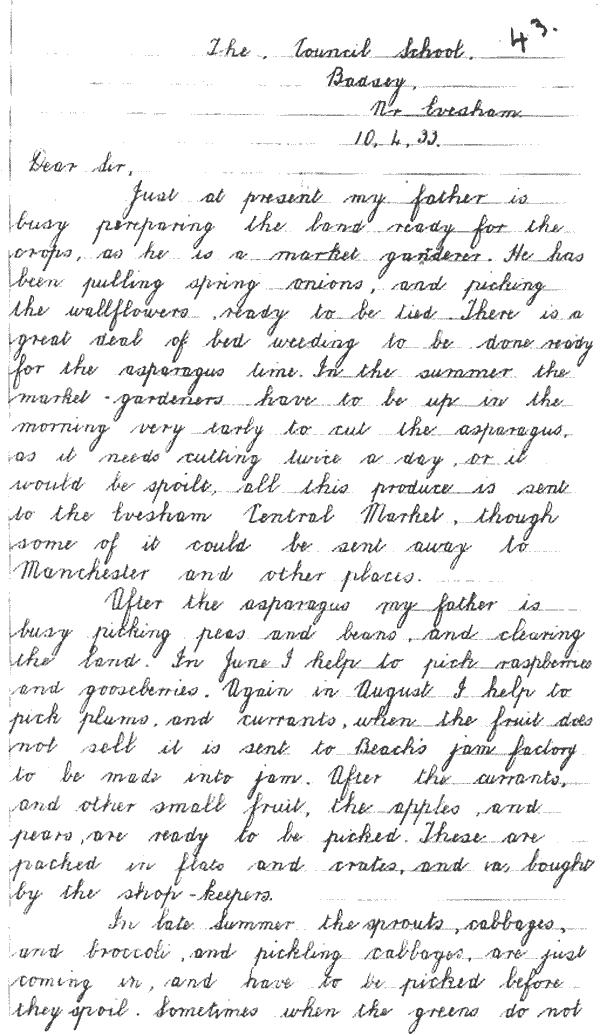 43.
The. Council School.
Badsey,
Nr Evesham.
10. 4. 33.
Dear Sir,
Just at present my father is
busy pereparing the land ready for the
crops, as he is a market garderer. He has
been pulling spring onions, and picking
the wallflowers, ready to be tied. There is a
great deal of bed weeding to be done ready
for the asparagus time. In the summer the
market-gardeners have to be up in the
morning very early to cut the asparagus,
as it needs cutting twice a day, or it
would be spoilt, all this produce is sent
to the Evesham Central Market, though
some of it could be sent away to
Manchester and other places.
After the asparagus my father is
busy picking peas and beans, and clearing
the land. In June I help to pick raspberries
and gooseberries. Again in August I help to
pick plums, and currants, when the fruit does
not sell it is sent to Beach's jam factory
to be made into jam. After the currants,
and other small fruit, the apples, and
pears, are ready to be picked. These are
packed in flats and crates, and bought
by the shop-keepers.
In late Summer the sprouts, cabbages,
and broccoli, and pickling cabbages, are just
coming in, and have to be picked before
they spoil. Sometimes when the greens do not